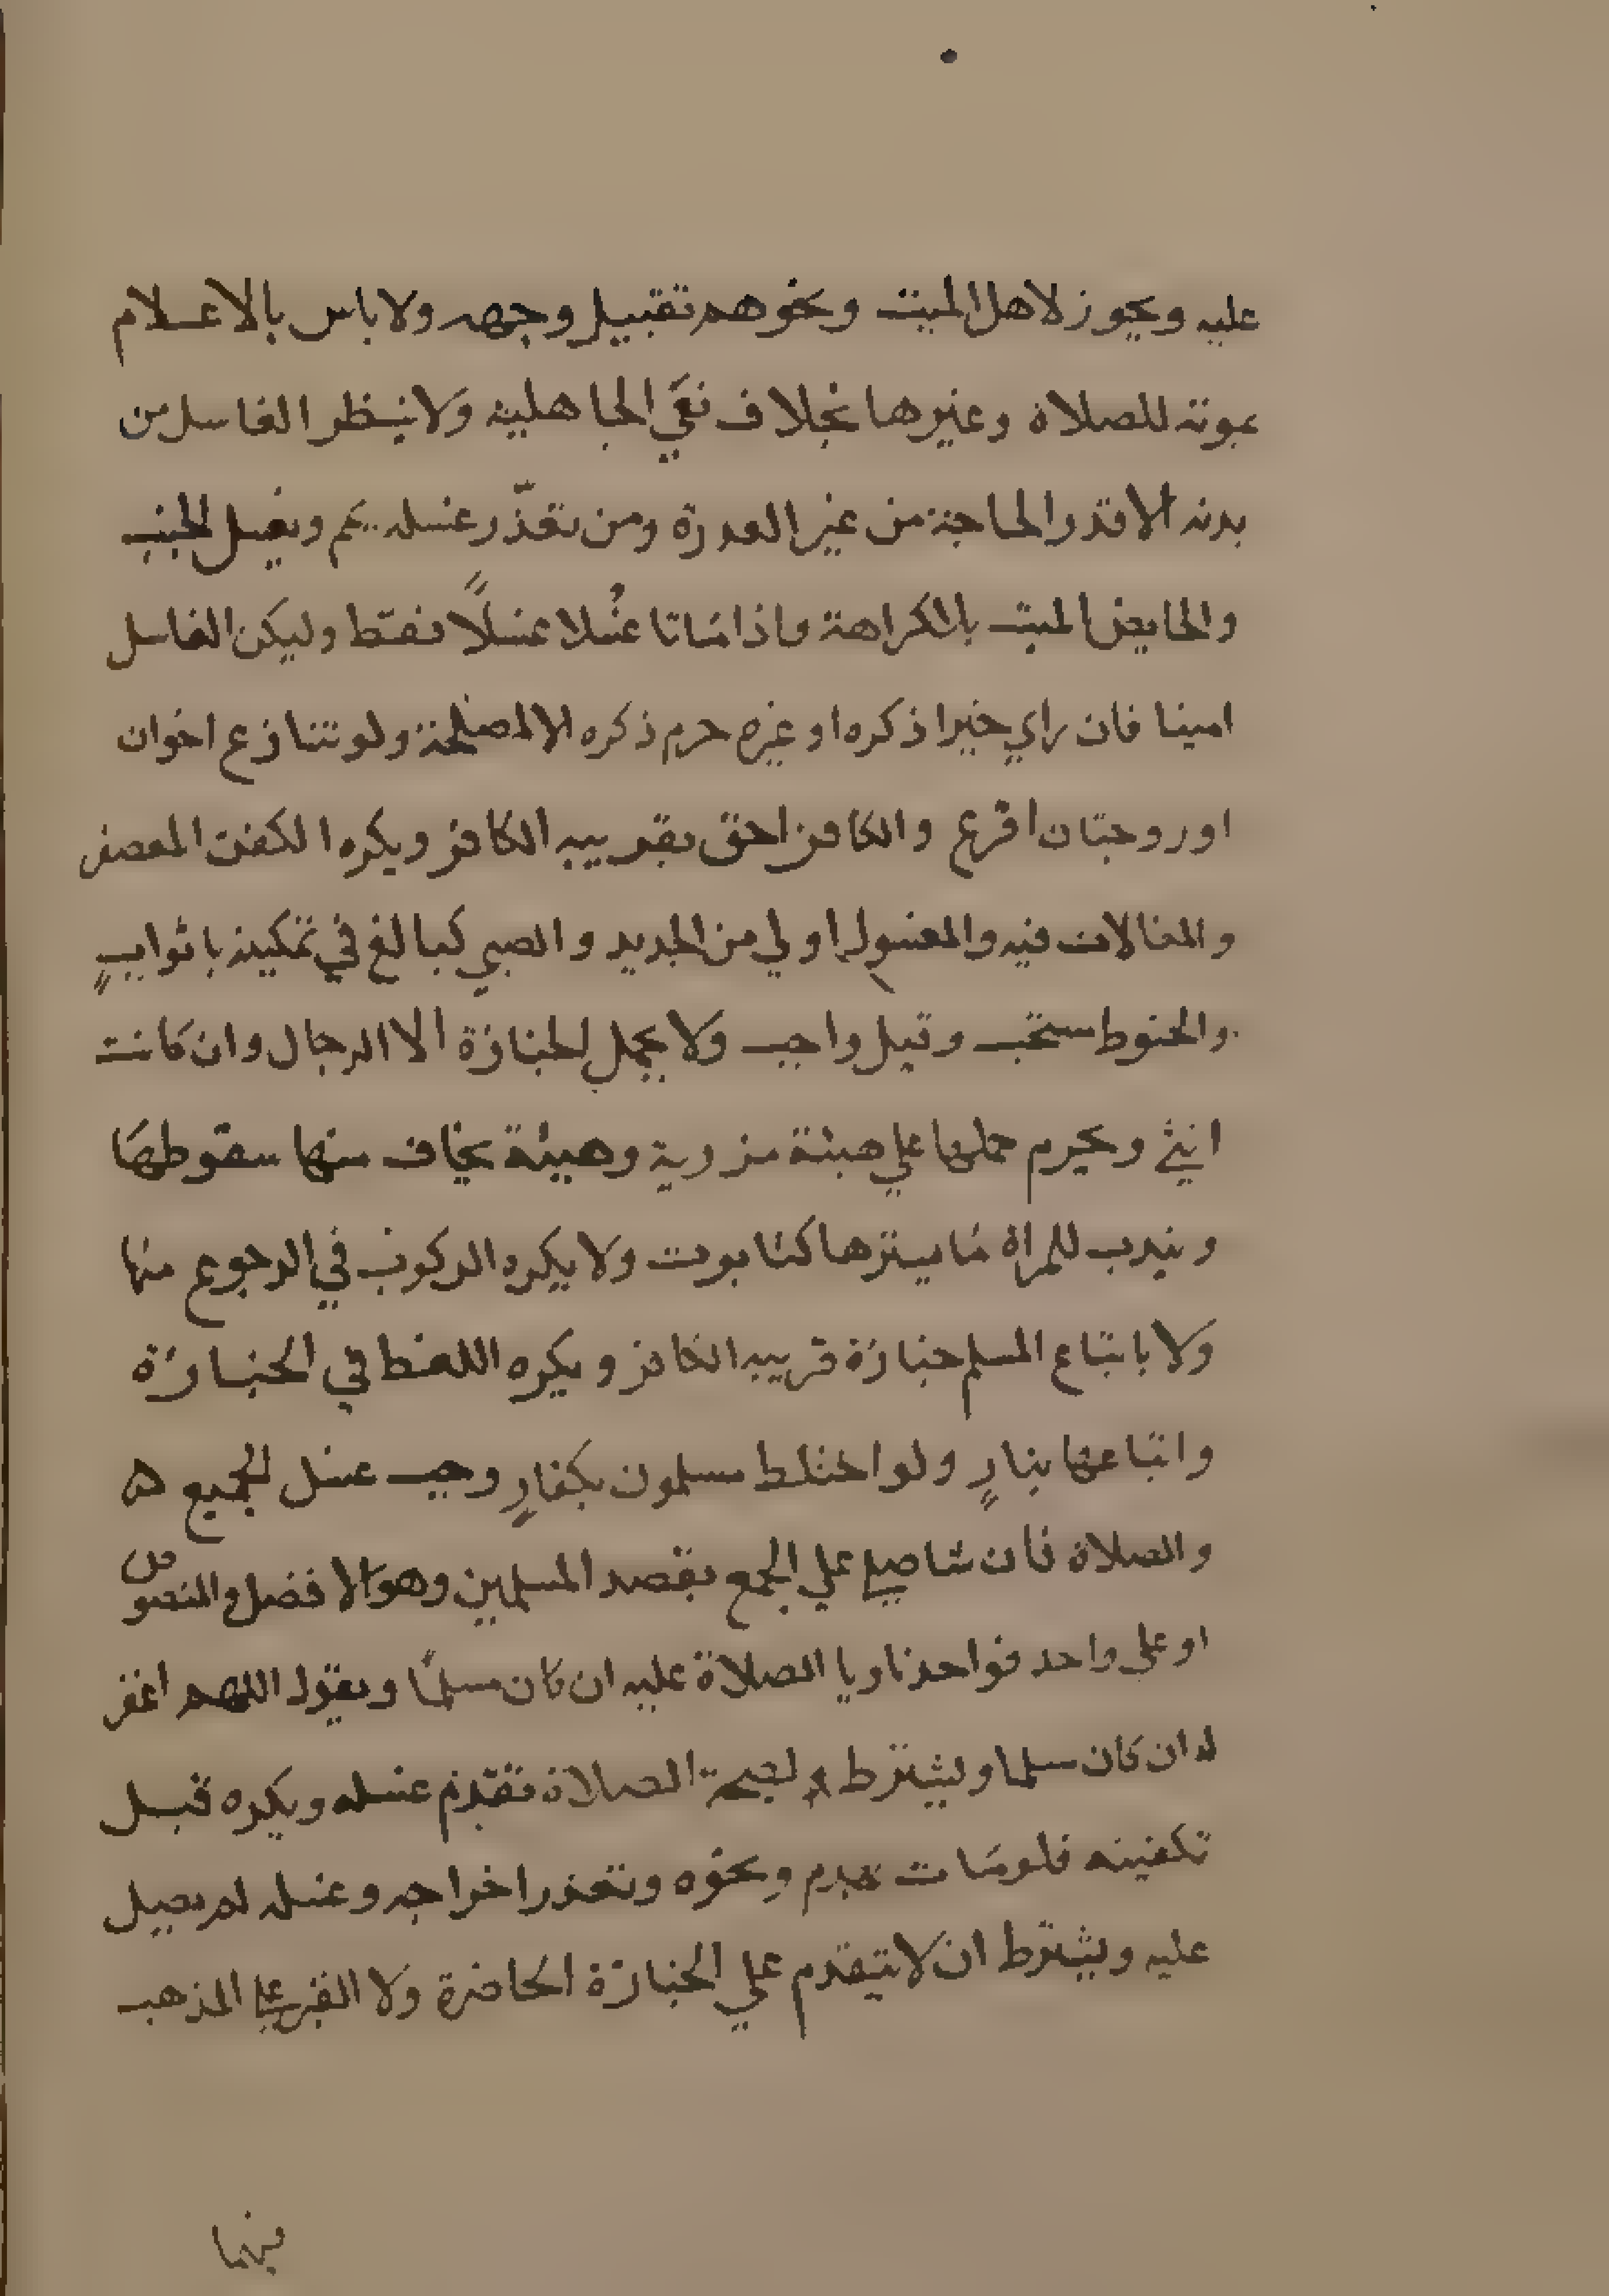 عليه ويجوز لاهل الميت ونحوهم تقبيل وجهه ولا باس بالاعلام
بموته للصلاة وغيرها بخلاف نعي الجاهلية ولا ينظر الغاسل من
بدنه الا قدر الحاجة من غير العورة ومن تعذّر غسله يمم ويغسل الجنب
والحايض الميت بلا كراهة واذا ماتا غُسلا غسلاً فقط وليكن الغاسل
امينا فان راي خيرا ذكره او غيره حرم ذكره الا لمصلحة ولو تنازع اخوان
او زوجتان اقرع والكافر احق بقريبه الكافر ويكره الكفن المعصفر
والمغالات فيه والمغسول اولي من الجديد والصبي كبالغ في تكفينه باثوابٍ
والحنوط مستحب وقيل واجب ولا يحمل الجنازة الا الرجال وان كانت
انثي ويحرم حملها علي هيئة مزرية وهيئة يخاف منها سقوطها
ويندب للمراة ما يسترها كتابوت ولا يكره الركوب في الرجوع منها
ولا باتباع المسلم جنازة قريبه الكافر ويكره اللغط في الجنازة
واتباعها بنارٍ ولو اختلط مسلمون بكفارٍ وجب غسل الجميع ه
والصلاة فان شا صلي علي الجميع بقصد المسلمين وهو الافضل والمنصوص
او علي واحد فواحد ناويا الصلاة عليه ان كان مسلمًا ويقول اللهم اغفر
له ان كان مسلما ويشترط لصحة الصلاة تقدم غسله ويكره قبل
تكفينه فلو مات بهدم ونحوه وتعذر اخراجه وغسله لم يصل
عليه ويشترط ان لا يتقدم علي الجنازة الحاضرة ولا القبر علي المذهب
فيهما